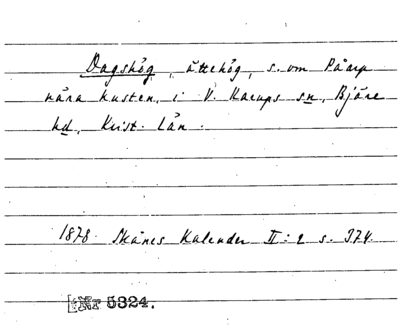 Dagshög, ättehög, s. om Påarp
nära kusten, i V. Karups sn, Bjäre
hd, Krist. län.
1878. Skånes Kalender II:2 s. 374.
Nr 5324.